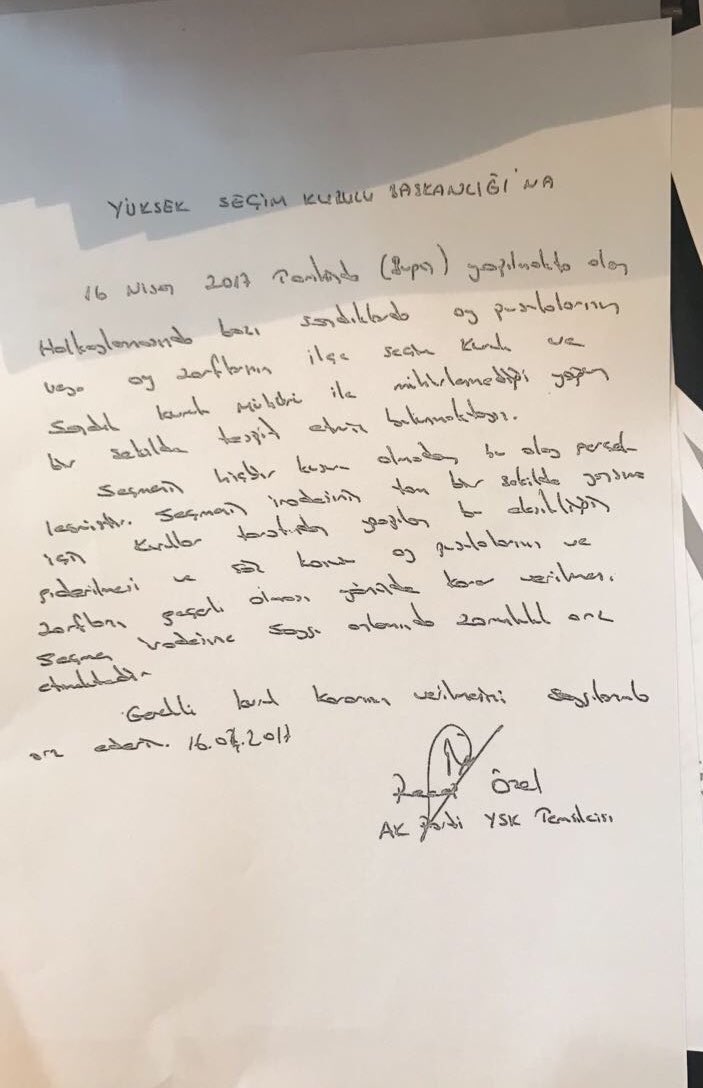 YÜKSEK SEÇİM KURULU BAŞKANLIĞI'NA
16 Nisan 2017 Tarihinde (Bugün) yapılmakta olan
Halkoylamasında bazı sandıklarda oy pusulalarının
veya oy zarflarının ilçe seçim kurulu ve
Sandık kurulu mührü ile mühürlemediği yaygın
bir şekilde tespit etmiş bulunmaktayız.
Seçmenin hiçbir kusuru olmadan bu olay gerçek-
leşmiştir. Seçmenin iradesinin tam bir şekilde yansıması
için kurullar tarafından yapılan bu eksikliğin
giderilmesi ve söz konusu oy pusulalarının ve
zarfların geçerli olması yönünde karar verilmesi.
Seçmen iradesine saygı anlamında zorunluluk arz
etmektedir.
Gerekli kurul kararının verilmesini saygılarımla
arz ederim. 16.04.2017
Recep Özel
AK Parti YSK Temsilcisi